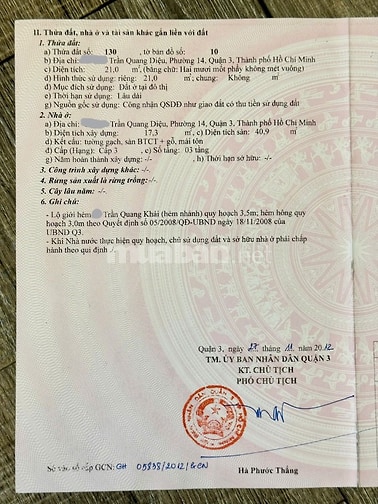 II. Thửa đất, nhà ở và tài sản khác gắn liền với đất
1. Thửa đất:
a) Thửa đất số: 130 , tờ bản đồ số: 10
b) Địa chỉ: Trần Quang Diệu, Phường 14, Quận 3, Thành phố Hồ Chí Minh
c) Diện tích: 21,0 m² (bằng chữ: Hai mươi mốt phẩy không mét vuông)
d) Hình thức sử dụng: riêng 21,0 m², chung: Không m²
đ) Mục đích sử dụng: Đất ở tại đô thị
e) Thời hạn sử dụng: Lâu dài
g) Nguồn gốc sử dụng: Công nhận QSDĐ như giao đất có thu tiền sử dụng đất
2. Nhà ở:
a) Địa chỉ: Trần Quang Diệu, Phường 14, Quận 3, Thành phố Hồ Chí Minh
b) Diện tích xây dựng: 17,3 m² c) Diện tích sàn: 40,9 m²
d) Kết cấu: tường gạch, sàn BTCT + gỗ, mái tôn
đ) Cấp (Hạng): Cấp 3 e) Số tầng: 03 tầng
g) Năm hoàn thành xây dựng: -/- h) Thời hạn sở hữu: -/-
3. Công trình xây dựng khác: -/-
4. Rừng sản xuất là rừng trồng: -/-
5. Cây lâu năm: -/-
6. Ghi chú:
- Lộ giới hẻm Trần Quang Khải (hẻm nhánh) quy hoạch 3,5m; hẻm hông quy
hoạch 3,0m theo Quyết định số 05/2008/QĐ-UBND ngày 18/11/2008 của
UBND Q3.
- Khi Nhà nước thực hiện quy hoạch, chủ sử dụng đất và sở hữu nhà ở phải chấp
hành theo qui định ./.
muaban.net
Quận 3, ngày tháng 11 năm 2012
TM. ỦY BAN NHÂN DÂN QUẬN 3
KT. CHỦ TỊCH
PHÓ CHỦ TỊCH
Số vào sổ cấp GCN: GH 05838/2012/GCN
Hà Phước Thắng